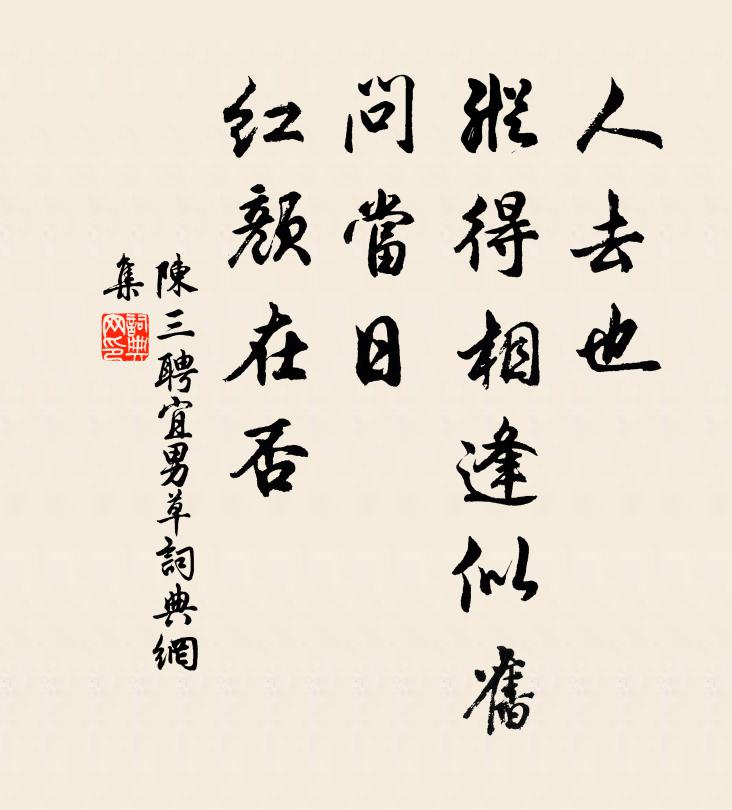 人去也
縱得相逢似舊
問當日
红顏在否
陳三聘宜男草詞典網
集
詞典
网印